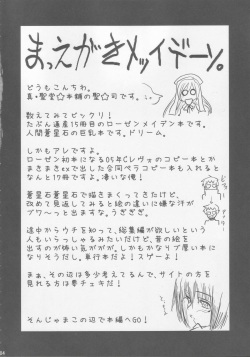 まっえがきメイデーン。
どうもこんちわ。
真・聖堂☆本舗の聖☆司です。
数えてみてビックリ!
たぶん通算15冊目のローゼンメイデン本です。
人間蒼星石の巨乳本です。ドリーム。
しかもアレですよ。
ローゼン初本になる05年Cレヴォのコピー本とか
まきまきexで出した合同ペラコピー本も入れると
なんと17冊ですよ。凄いな俺!
蒼星石蒼星石で描きまくってきたけど、
改めて見返してみると絵の違いに嫌な汗が
ブワ〜っと出ますな。うぎぎぎ。
途中からウチを知って、総集編が欲しいという
人もいらっしゃるみたいだけど、昔の絵を
出すのが怖い気がするが、しかもかなりブ厚い本に
なりそうだし。単行本だよ!スゲーよ!
まぁ、その辺は多少考えてるんで、サイトの方を
見れる方は要チェキだ!
そんじゃまこの辺で本編へGO!